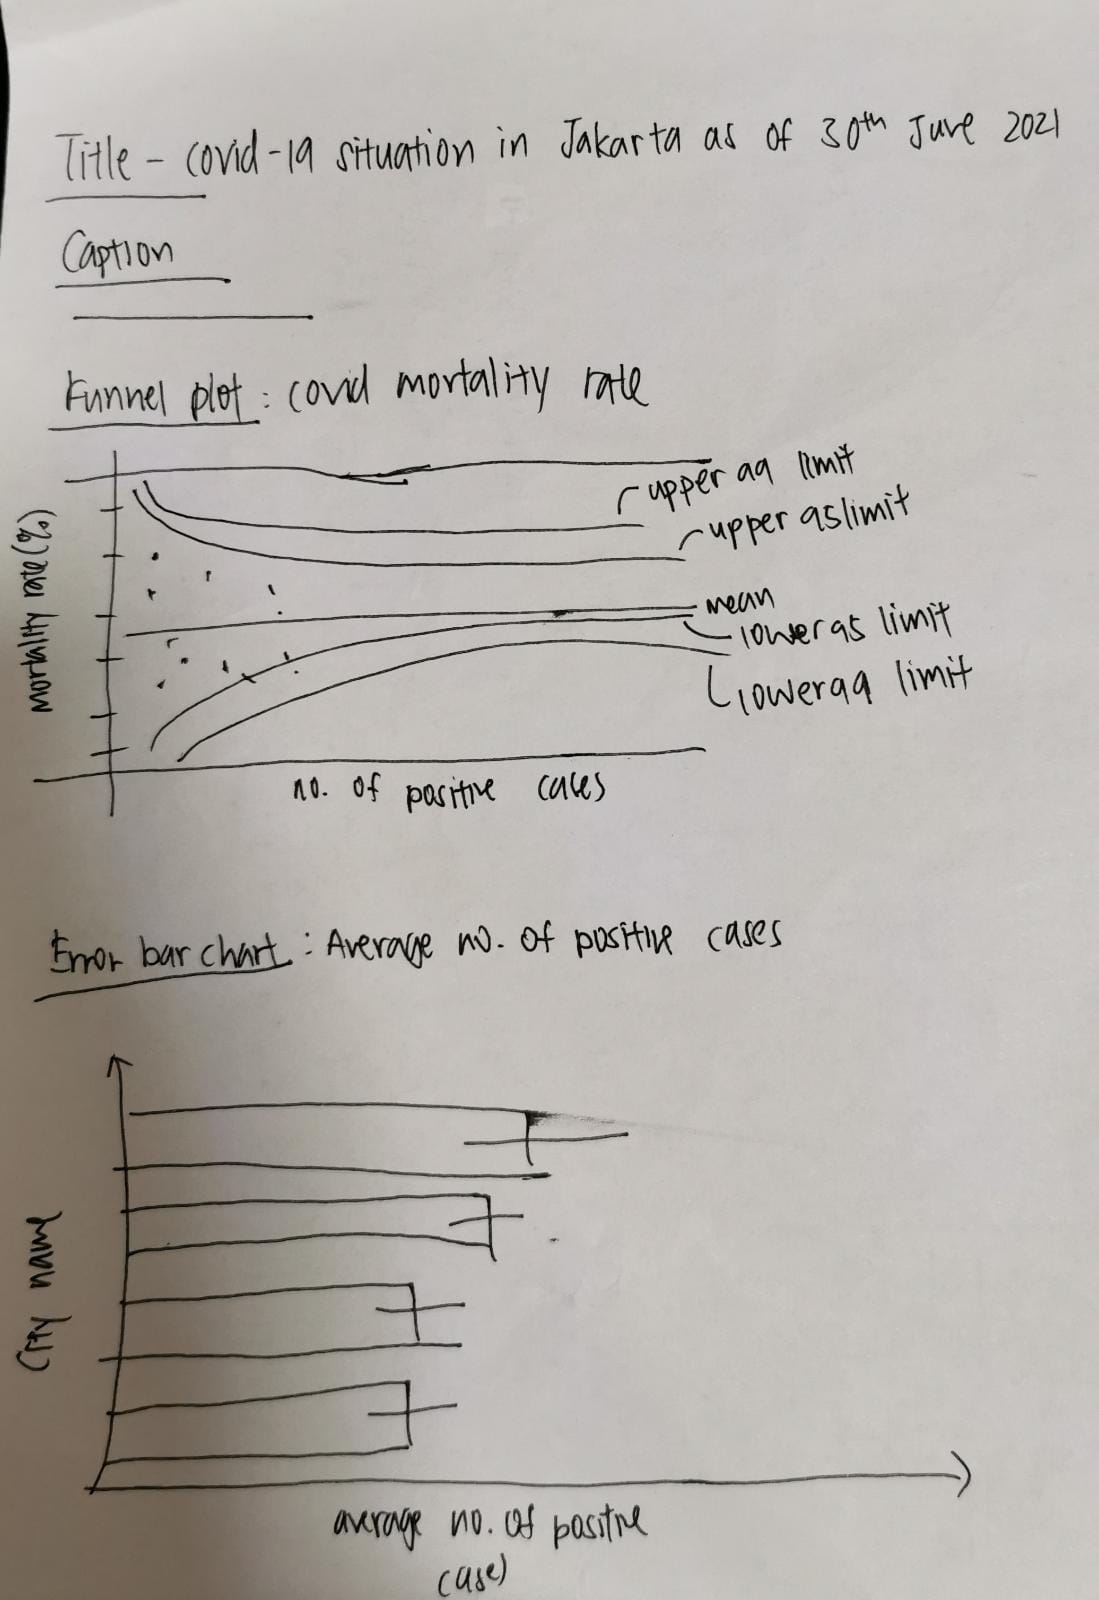 Title - covid-19 situation in Jakarta as of 30th June 2021
Caption
Funnel plot : covid mortality rate
upper 99 limit
upper 95 limit
mean
lower 95 limit
lower 99 limit
mortality rate (%)
no. of positive cases
Error bar chart : Average no. of positive cases
City name
average no. of positive
cases